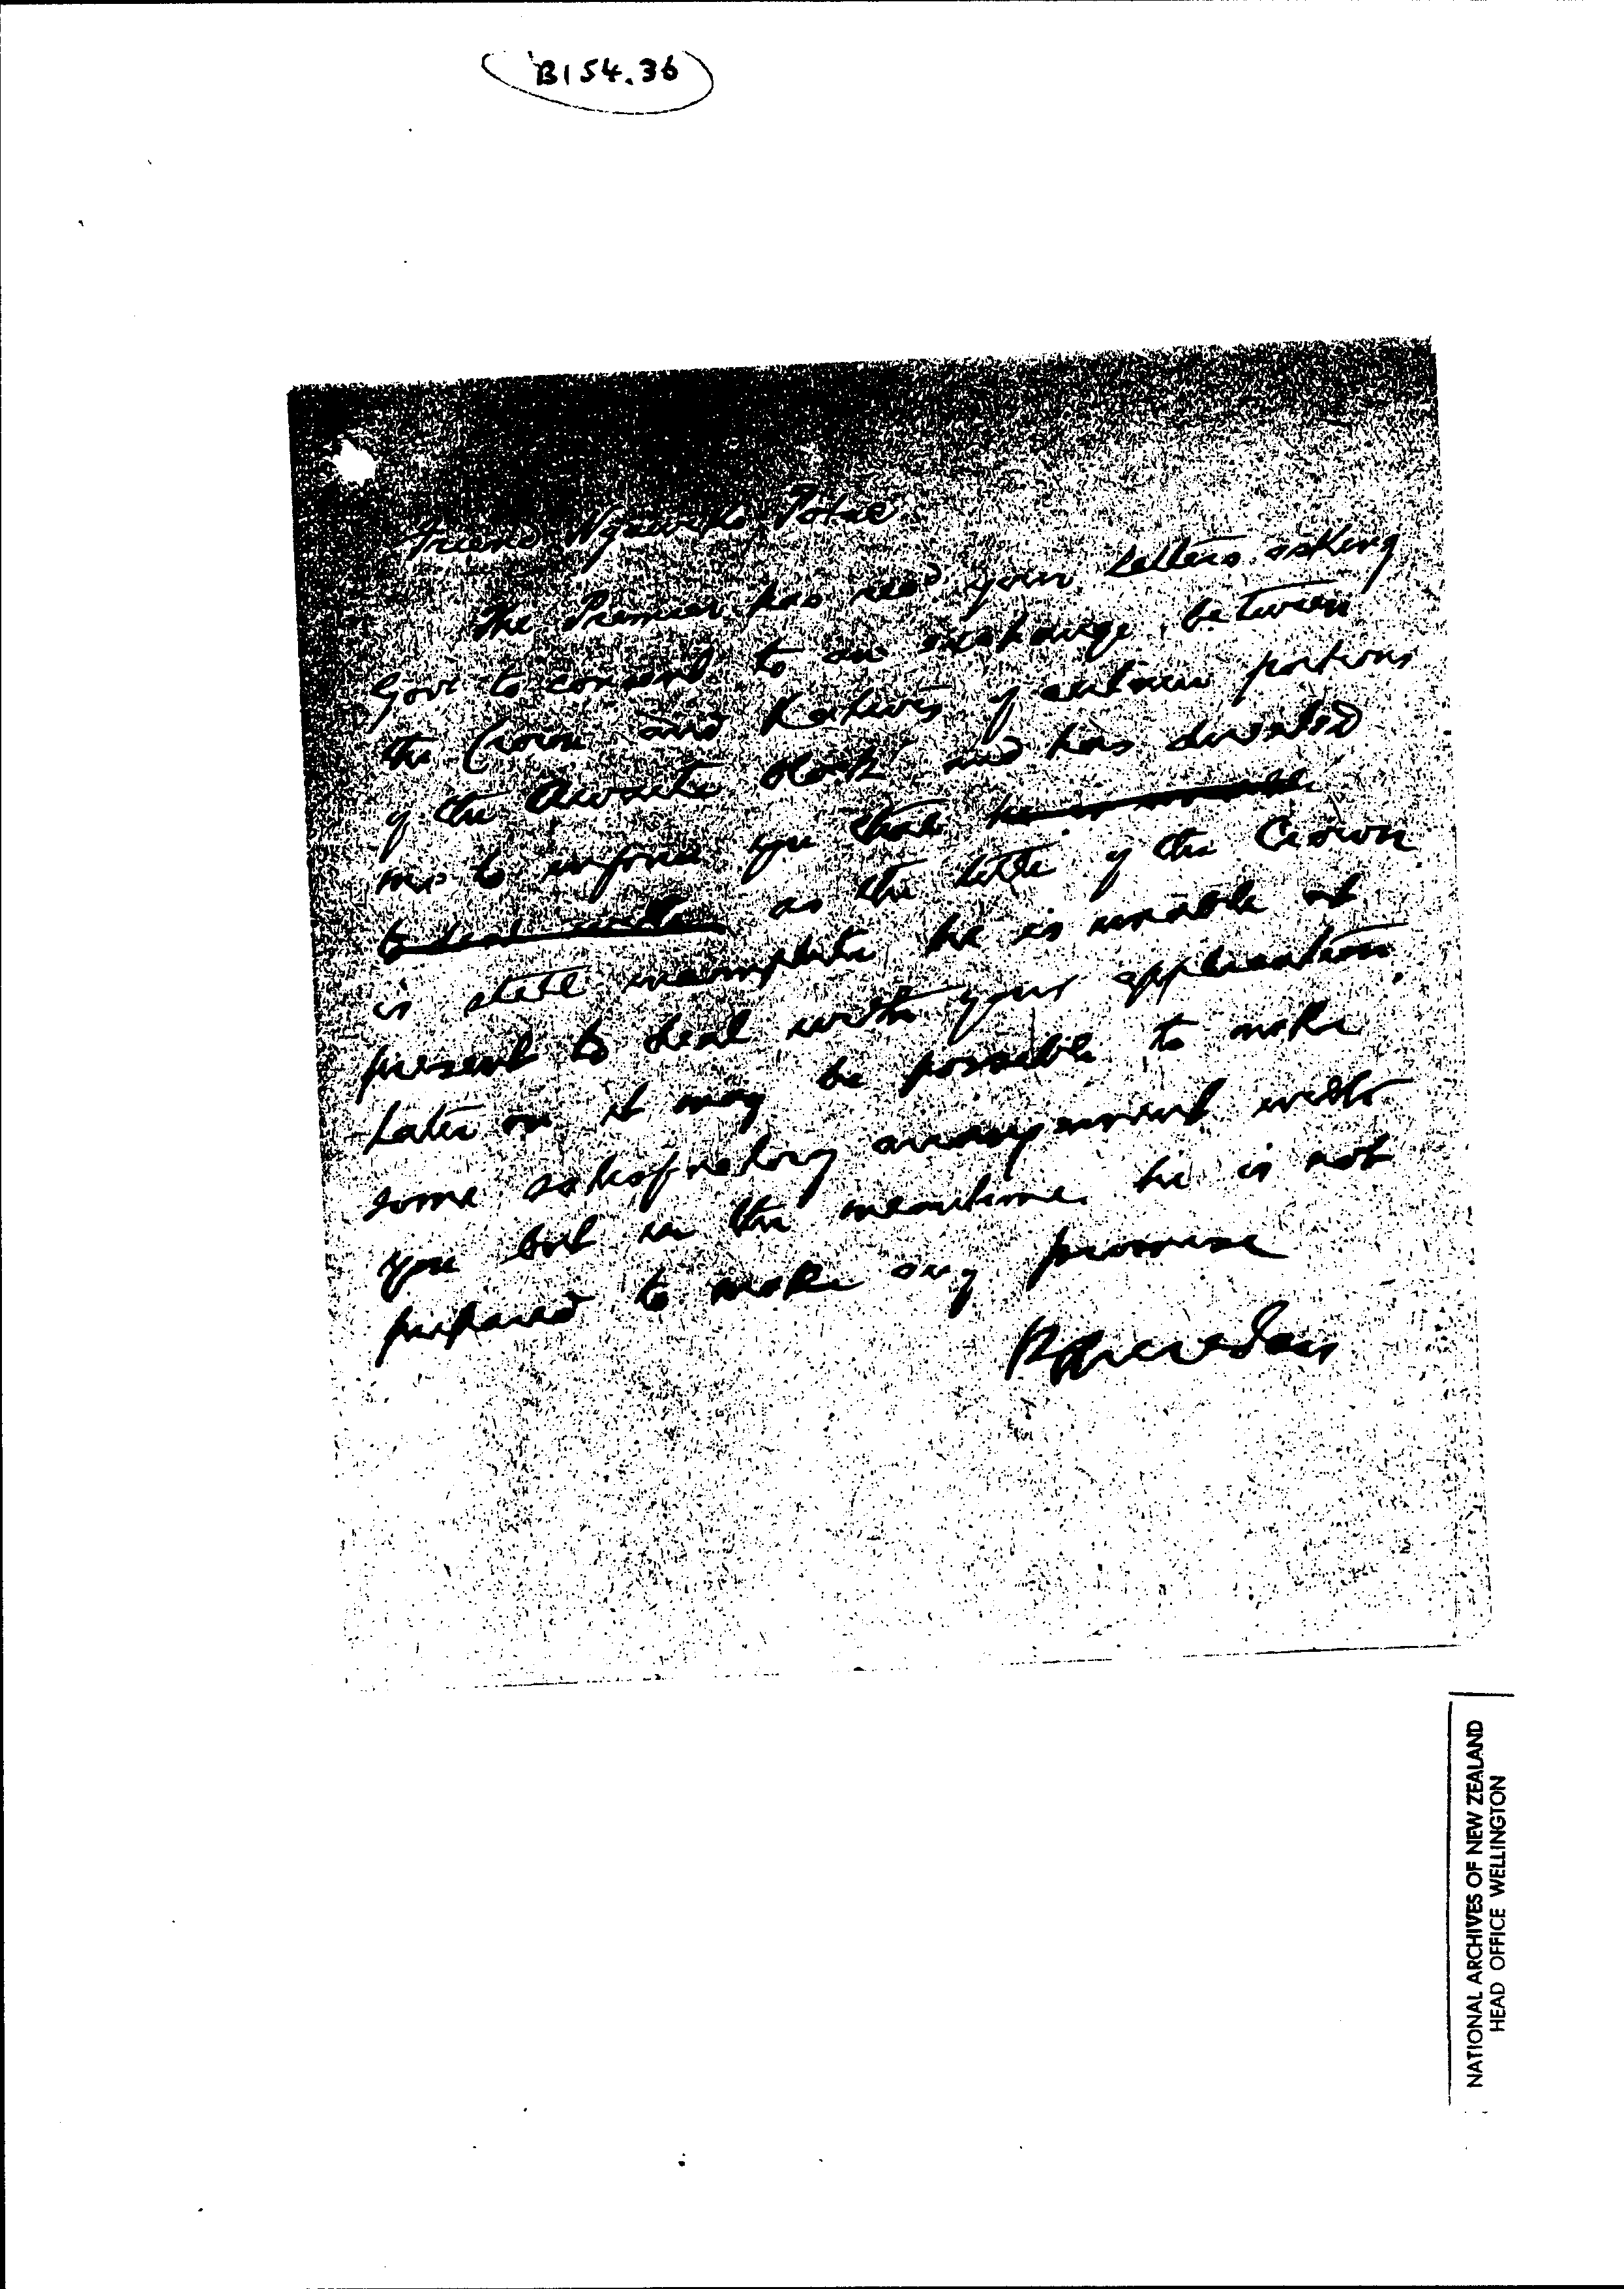 B154.36
Friend Potae
The Premier has recd. your letters asking
Govt to consent to an exchange between
the Crown and Natives of certain portions
of the block and has directed
me to inform you that he is unable
to deal with as the title of the Crown
is still incomplete he is unable at
present to deal with your application.
Later on it may be possible to make
some satisfactory arrangement with
you but in the meantime he is not
prepared to make any promise
NATIONAL ARCHIVES OF NEW ZEALAND
HEAD OFFICE WELLINGTON